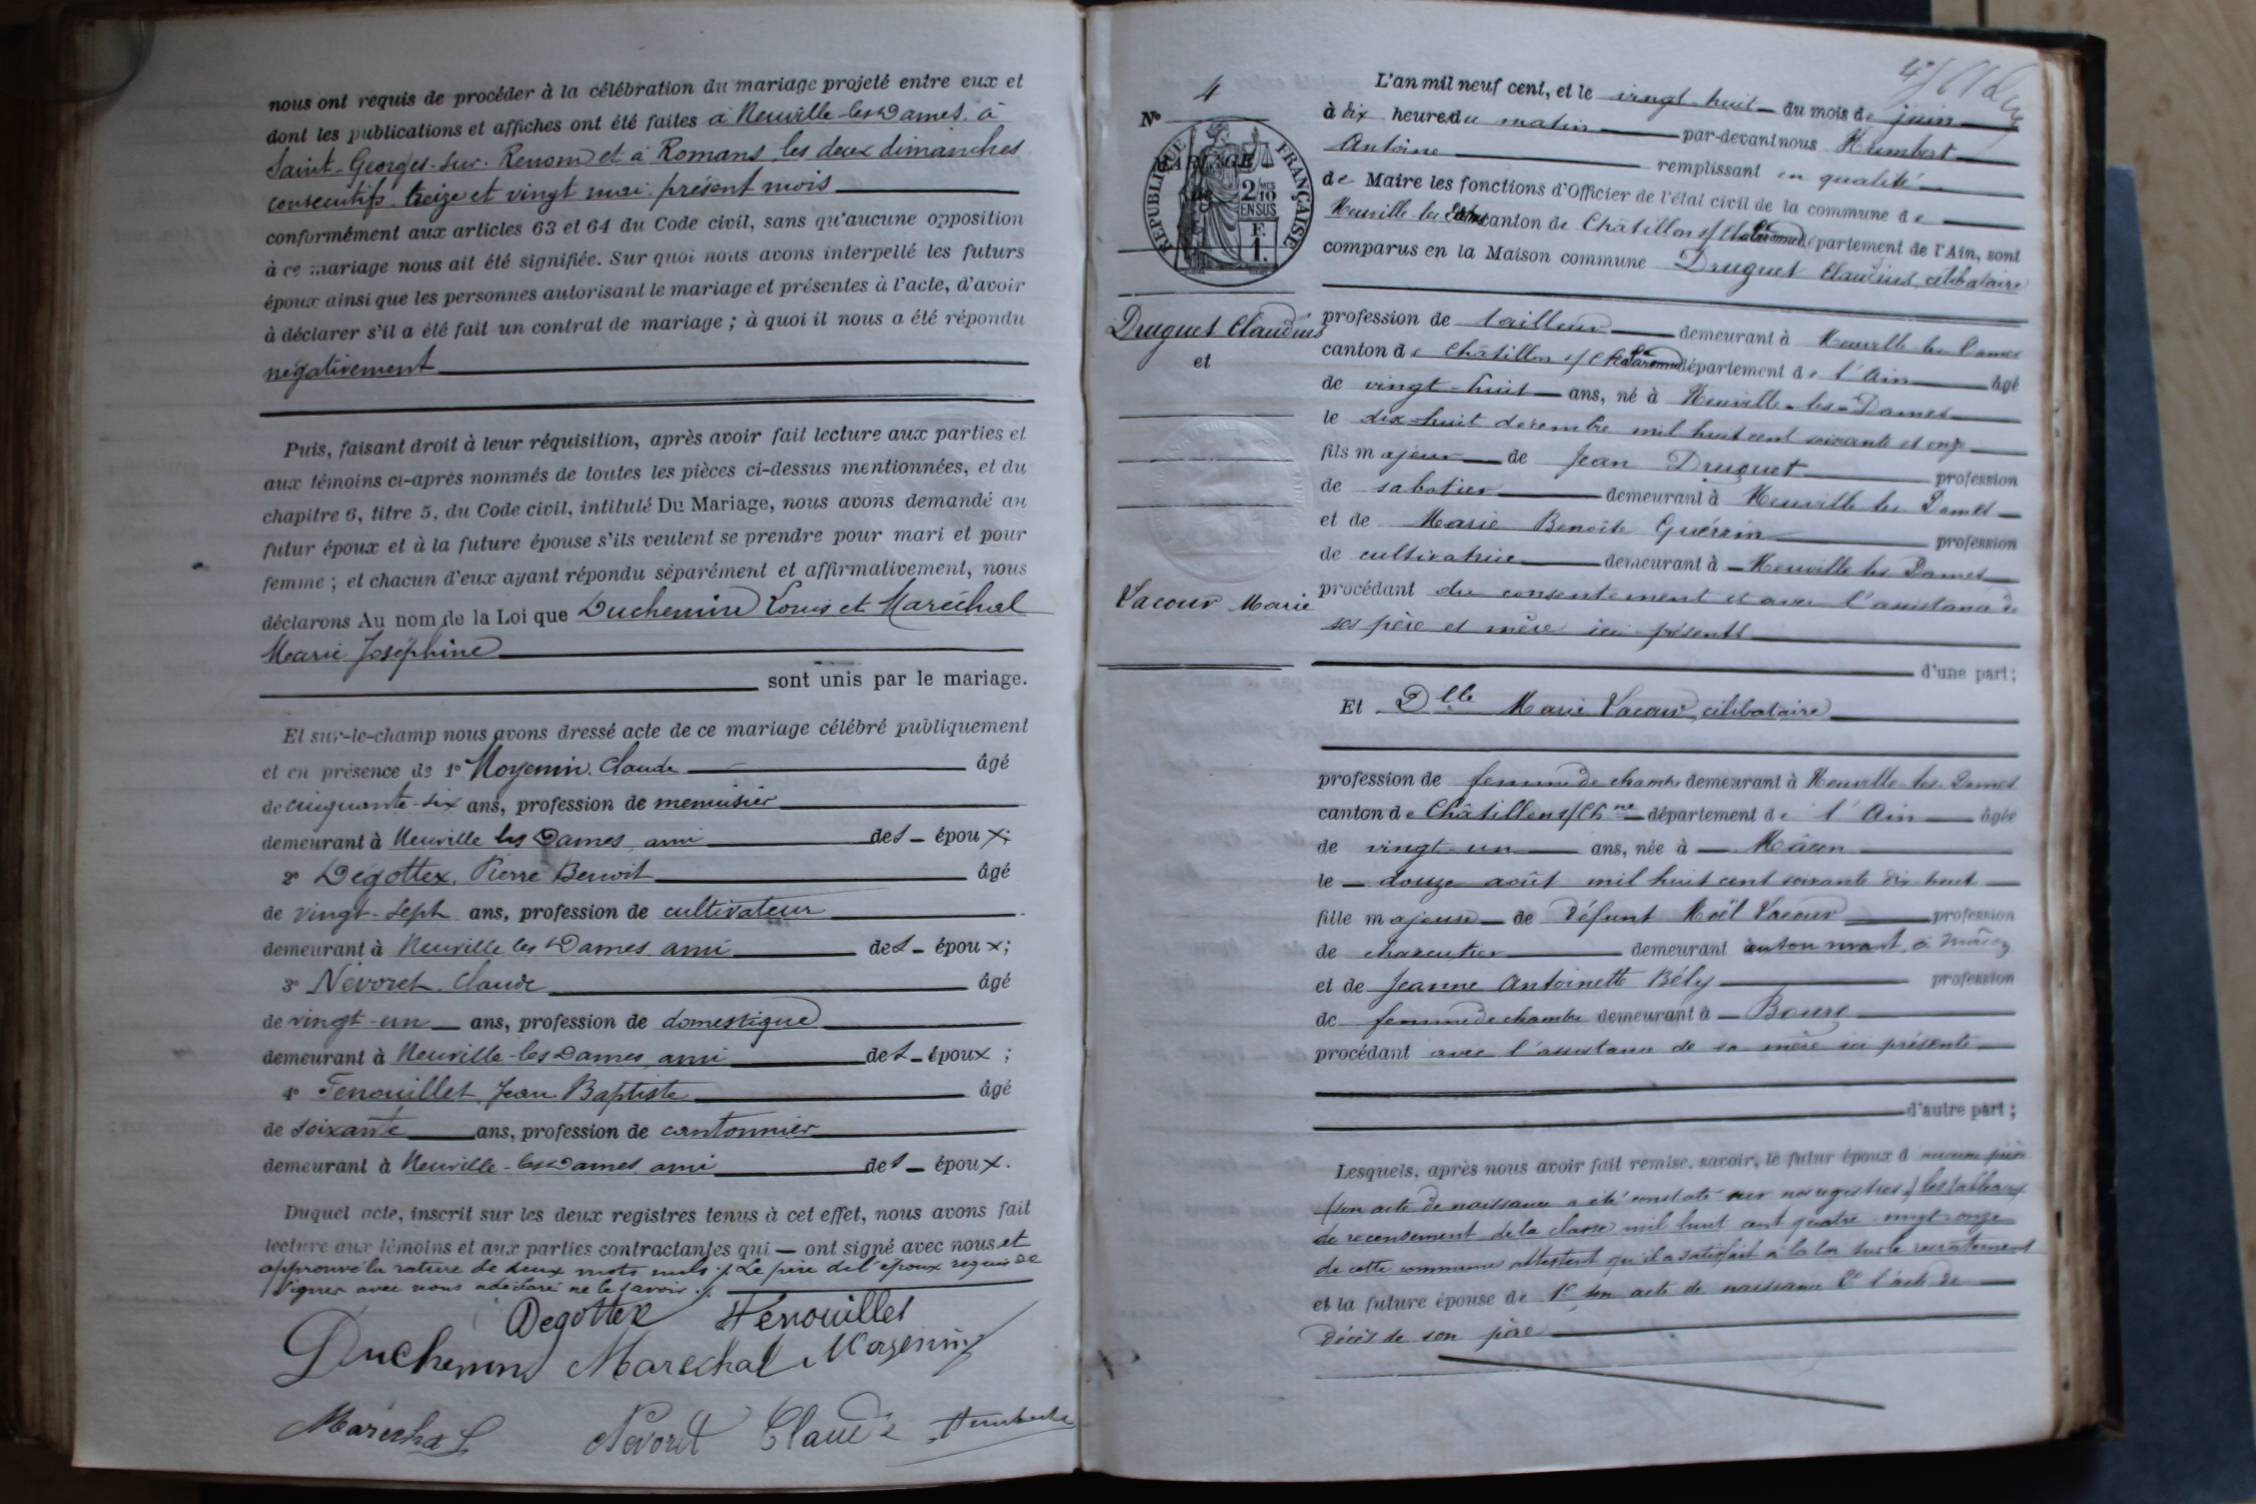 nous ont requis de procéder à la célébration du mariage projeté entre eux et
dont les publications et affiches ont été faites à Neuville-les-Dames, à
Saint-Georges-sur-Renom et à Romans les deux dimanches
consécutifs treize et vingt mai présent mois
conformément aux articles 63 et 64 du Code civil, sans qu'aucune opposition
à ce mariage nous ait été signifiée. Sur quoi nous avons interpellé les futurs
époux ainsi que les personnes autorisant le mariage et présentes à l'acte, d'avoir
à déclarer s'il a été fait un contrat de mariage ; à quoi il nous a été répondu
négativement
Puis, faisant droit à leur réquisition, après avoir fait lecture aux parties et
aux témoins ci-après nommés de toutes les pièces ci-dessus mentionnées, et du
chapitre 6, titre 5, du Code civil, intitulé Du Mariage, nous avons demandé au
futur époux et à la future épouse s'ils veulent se prendre pour mari et pour
femme ; et chacun d'eux ayant répondu séparément et affirmativement, nous
déclarons Au nom de la Loi que Duchemin Louis et Maréchal
Marie Joséphine
sont unis par le mariage.
Et sur-le-champ nous avons dressé acte de ce mariage célébré publiquement
et en présence de 1° Moyenin Claude âgé
de cinquante-six ans, profession de menuisier
demeurant à Neuville les Dames, ami des époux ;
2° Dégottex, Pierre Benoit âgé
de vingt-sept ans, profession de cultivateur
demeurant à Neuville les Dames, ami des époux ;
3° Nevoret, Claude âgé
de vingt-un ans, profession de domestique
demeurant à Neuville-les-Dames, ami des époux ;
4° Fenouillet, Jean Baptiste âgé
de soixante ans, profession de cantonnier
demeurant à Neuville-les-Dames, ami des époux.
Duquel acte, inscrit sur les deux registres tenus à cet effet, nous avons fait
lecture aux témoins et aux parties contractantes qui ont signé avec nous et
approuvé la rature de deux mots nuls. Le père de l'époux requis de
signer avec nous a déclaré ne le savoir.
Degottex Fénouillet
Duchemin Marechal Moyenin
Maréchal Nevoret Claude Humbert
N° 4
MARIAGE
RÉPUBLIQUE FRANÇAISE
2/10
EN SUS
F.
1.
Druguet Claudius
et
Lacour Marie
L'an mil neuf cent, et le vingt-huit du mois de juin
à dix heures du matin par-devant nous Humbert
Antoine remplissant en qualité
de Maire les fonctions d'Officier de l'état civil de la commune de
Neuville-les-Dames canton de Châtillon s/ Chalaronne département de l'Ain, sont
comparus en la Maison commune Druguet Claudius, célibataire
profession de tailleur demeurant à Neuville-les-Dames
canton de Châtillon s/ Chalaronne département de l'Ain âgé
de vingt-huit ans, né à Neuville-les-Dames
le dix-huit décembre mil huit cent soixante et onze
fils majeur de Jean Druguet profession
de sabotier demeurant à Neuville les Dames
et de Marie Benoîte Guérin profession
de cultivatrice demeurant à Neuville les Dames
procédant du consentement et avec l'assistance de
ses père et mère ici présents
d'une part ;
Et Dlle Marie Lacour, célibataire
profession de femme de chambre demeurant à Neuville-les-Dames
canton de Châtillon s/Chne département de l'Ain âgée
de vingt-un ans, née à Mâcon
le douze août mil huit cent soixante dix-huit
fille majeure de défunt Noël Lacour profession
de charcutier demeurant en son vivant à Mâcon
et de Jeanne Antoinette Bély profession
de femme de chambre demeurant à Bourg
procédant avec l'assistance de sa mère ici présente
d'autre part ;
Lesquels, après nous avoir fait remise, savoir, le futur époux d'aucune pièce
(son acte de naissance a été constaté sur nos registres) les tableaux
de recensement de la classe mil huit cent quatre-vingt-onze
de cette commune attestent qu'il a satisfait à la loi sur le recrutement
et la future épouse de 1° son acte de naissance 2° l'acte de
décès de son père